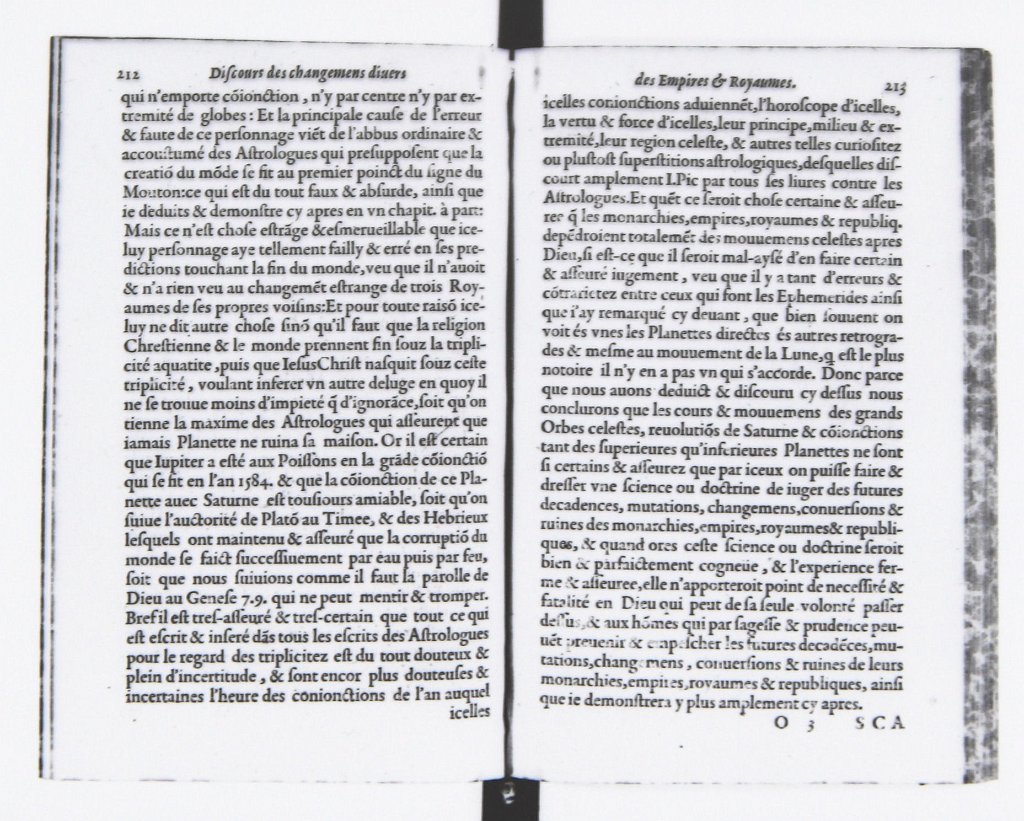 212 Diſcours des changemens diuers
qui n'emporte cõionction, n'y par centre n'y par ex-
tremité de globes : Et la principale cauſe de l'erreur
& faute de ce perſonnage viẽt de l'abbus ordinaire &
accouſtumé des Aſtrologues qui preſuppoſent que la
creatiõ du mõde ſe fit au premier poinct du ſigne du
Mouton:ce qui eſt du tout faux & abſurde, ainſi que
ie deduits & demonſtre cy apres en vn chapit. à part:
Mais ce n'eſt choſe eſtrãge &eſmerueillable que ice-
luy perſonnage aye tellement failly & erré en ſes pre-
dictions touchant la fin du monde,veu que il n'auoit
& n'a rien veu au changemẽt eſtrange de trois Roy-
aumes de ſes propres voiſins:Et pour toute raisõ ice-
luy ne dit autre choſe ſinõ qu'il faut que la religion
Chreſtienne & le monde prennent fin ſouz la tripli-
cité aquatite ,puis que IeſusChriſt naſquit ſouz ceſte
triplicité , voulant inferer vn autre deluge en quoy il
ne ſe trouue moins d'impieté q̃ d'ignorãce,ſoit qu'on
tienne la maxime des Aſtrologues qui aſſeurent que
iamais Planette ne ruina ſa maiſon. Or il eſt certain
que Iupiter a eſté aux Poiſſons en la grãde cõionctiõ
qui ſe fit en l'an 1584. & que la cõionction de ce Pla-
nette auec Saturne eſt touſiours amiable, ſoit qu'on
ſuiue l'auctorité de Platõ au Timee, & des Hebrieux
leſquels ont maintenu & aſſeuré que la corruptiõ du
monde ſe faict ſucceſſiuement par eau puis par feu,
ſoit que nous ſuiuions comme il faut la parolle de
Dieu au Geneſe 7.9. qui ne peut mentir & tromper.
Bref il eſt treſ-aſſeuré & treſ-certain que tout ce qui
eſt eſcrit & inſeré dãs tous les eſcrits des Aſtrologues
pour le regard des triplicitez eſt du tout douteux &
plein d'incertitude , & ſont encor plus douteuſes &
incertaines l'heure des conionctions de l'an auquel
icelles
des Empires & Royaumes. 213
icelles conionctions aduiennẽt,l'horoſcope d'icelles,
la vertu & force d'icelles,leur principe,milieu & ex-
tremité,leur region celeſte, & autres telles curioſitez
ou pluſtoſt ſuperſtitions aſtrologiques,deſquelles diſ-
court amplement I.Pic par tous ſes liures contre les
Aſtrologues.Et quẽt ce ſeroit choſe certaine & aſſeu-
ree q̃ les monarchies,empires,royaumes & republiq.
depẽdroient totalemẽt des mouuemens celeſtes apres
Dieu,ſi eſt-ce que il ſeroit mal-ayſé d'en faire certain
& aſſeuré iugement , veu que il y a tant d'erreurs &
cõtrarietez entre ceux qui font les Ephemerides ainſi
que i'ay remarqué cy deuant , que bien ſouuent on
voit és vnes les Planettes directes és autres retrogra-
des & meſme au mouuement de la Lune,q̃ eſt le plus
notoire il n'y en a pas vn qui s'accorde. Donc parce
que nous auons deduict & diſcouru cy deſſus nous
conclurons que les cours & mouuemens des grands
Orbes celeſtes, reuolutiõs de Saturne & cõionctions
tant des ſuperieures qu'inferieures Planettes ne ſont
ſi certains & aſſeurez que par iceux on puiſſe faire &
dreſſer vne ſcience ou doctrine de iuger des futures
decadences, mutations, changemens,conuerſions &
ruines des monarchies,empires,royaumes& republi-
ques, & quand ores ceſte ſcience ou doctrine ſeroit
bien & parfaictement cogneüe , & l'experience fer-
me & aſſeuree,elle n'apporteroit point de neceſſité &
fatalité en Dieu qui peut de ſa ſeule volonté paſſer
deſſus,& aux hõmes qui par ſageſſe & prudence peu-
uẽt preuenir & empeſcher les futures decadẽces,mu-
tations,changemens , conuerſions & ruines de leurs
monarchies,empires,royaumes & republiques, ainſi
que ie demonſtrera y plus amplement cy apres.
O 3 SCA